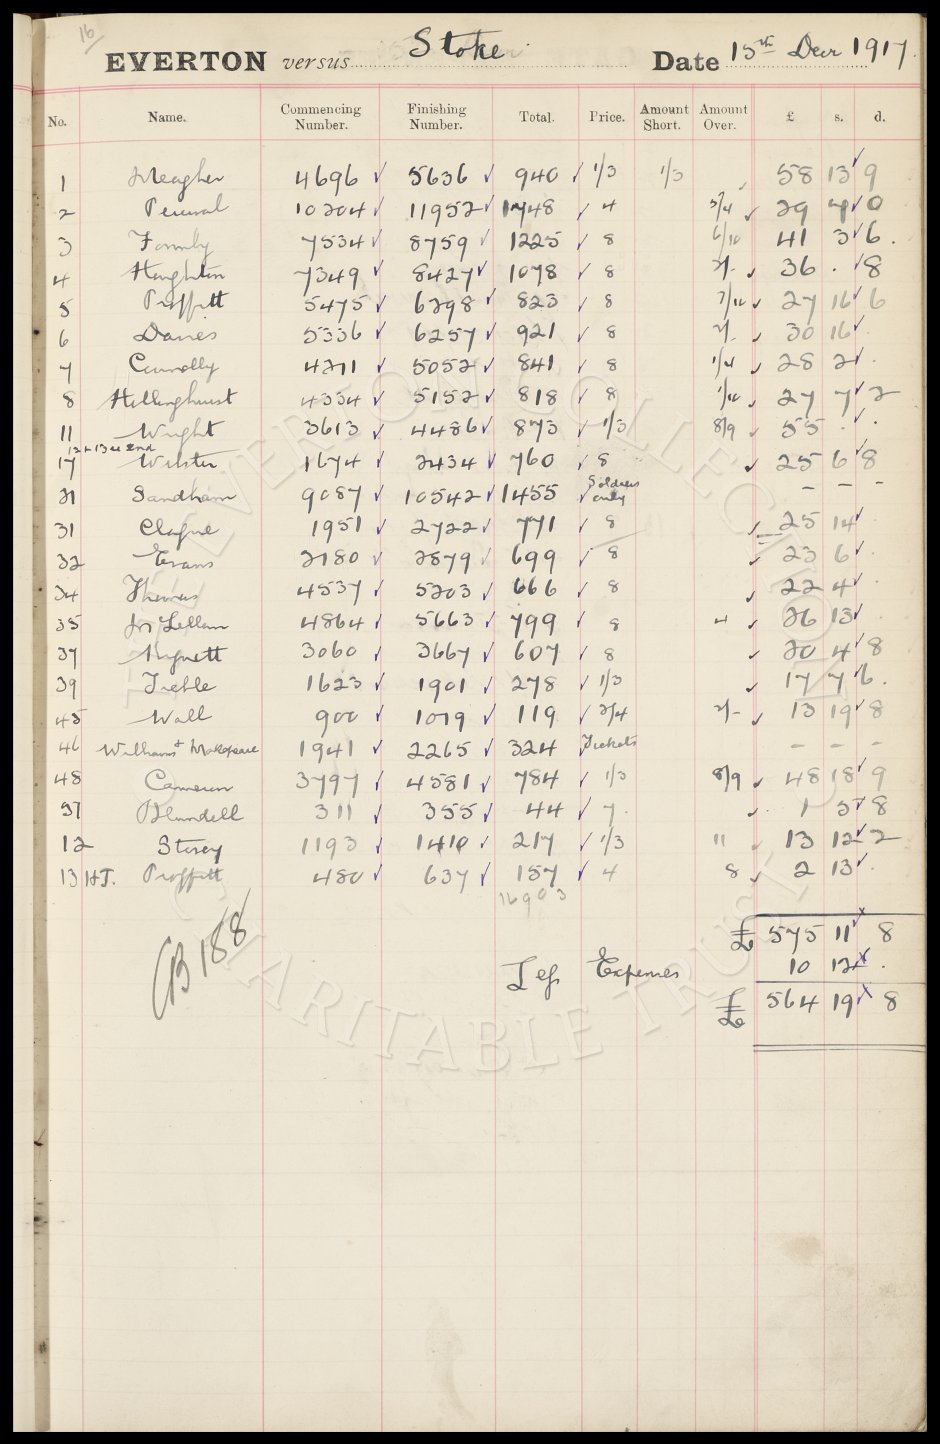 16/
EVERTON versus Stoke Date 15th Decr 1917.
No. Name. Commencing Number. Finishing Number. Total. Price. Amount Short. Amount Over. £ s. d.
1 Meagher 4696 ✓ 5636 ✓ 940 ✓ 1/3 1/3 58 13 ✓ 9
2 Percival 10204 ✓ 11952 ✓ 1748 ✓ 4 5/4 ✓ 29 7 ✓ 0
3 Formby 7534 ✓ 8759 ✓ 1225 ✓ 8 6/10 41 3 ✓ 6.
4 Houghton 7349 ✓ 8427 ✓ 1078 ✓ 8 2/- ✓ 36 . ✓ 8
5 Proffitt 5475 ✓ 6298 ✓ 823 ✓ 8 7/10 ✓ 27 16 ✓ 6
6 Davies 5336 ✓ 6257 ✓ 921 ✓ 8 2/- ✓ 30 16 ✓ .
7 Connolly 4211 ✓ 5052 ✓ 841 ✓ 8 1/4 ✓ 28 2 ✓ .
8 Hollinghurst 4334 ✓ 5152 ✓ 818 ✓ 8 1/10 ✓ 27 7 ✓ 2
11 Wright 3613 ✓ 4486 ✓ 873 ✓ 1/3 8/9 ✓ 55 . ✓ .
17 Webster 1674 ✓ 2434 ✓ 760 ✓ 8 ✓ 25 6 ✓ 8
21 Sandham 9087 ✓ 10542 ✓ 1455 ✓ Soldiers only - - -
31 Clague 1951 ✓ 2722 ✓ 771 ✓ 8 ✓ 25 14 ✓ .
32 Evans 2180 ✓ 2879 ✓ 699 ✓ 8 ✓ 23 6 ✓ .
34 Thomas 4537 ✓ 5203 ✓ 666 ✓ 8 ✓ 22 4 ✓ .
35 McLellan 4864 ✓ 5663 ✓ 799 ✓ 8 4 ✓ 26 13 ✓
37 Hignett 3060 ✓ 3667 ✓ 607 ✓ 8 ✓ 20 4 ✓ 8
39 Treble 1623 ✓ 1901 ✓ 278 ✓ 1/3 ✓ 17 7 ✓ 6.
45 Wall 900 ✓ 1019 ✓ 119 ✓ 2/4 2/- ✓ 13 19 ✓ 8
46 Williams & Makepeace 1941 ✓ 2265 ✓ 324 ✓ Tickets - - -
48 Cameron 3797 ✓ 4581 ✓ 784 ✓ 1/3 8/9 ✓ 48 18 ✓ 9
51 Blundell 311 ✓ 355 ✓ 44 ✓ 7. ✓ 1 5 ✓ 8
12 Storey 1193 ✓ 1410 ✓ 217 ✓ 1/3 11 ✓ 13 12 ✓ 2
13 H.T. Proffitt 480 ✓ 637 ✓ 157 ✓ 4 8 ✓ 2 13 ✓ .
16903
£ 575 11 8
CB 188
Less Expenses 10 12 .
£ 564 19 8
EVERTON COLLECTION
CHARITABLE TRUST